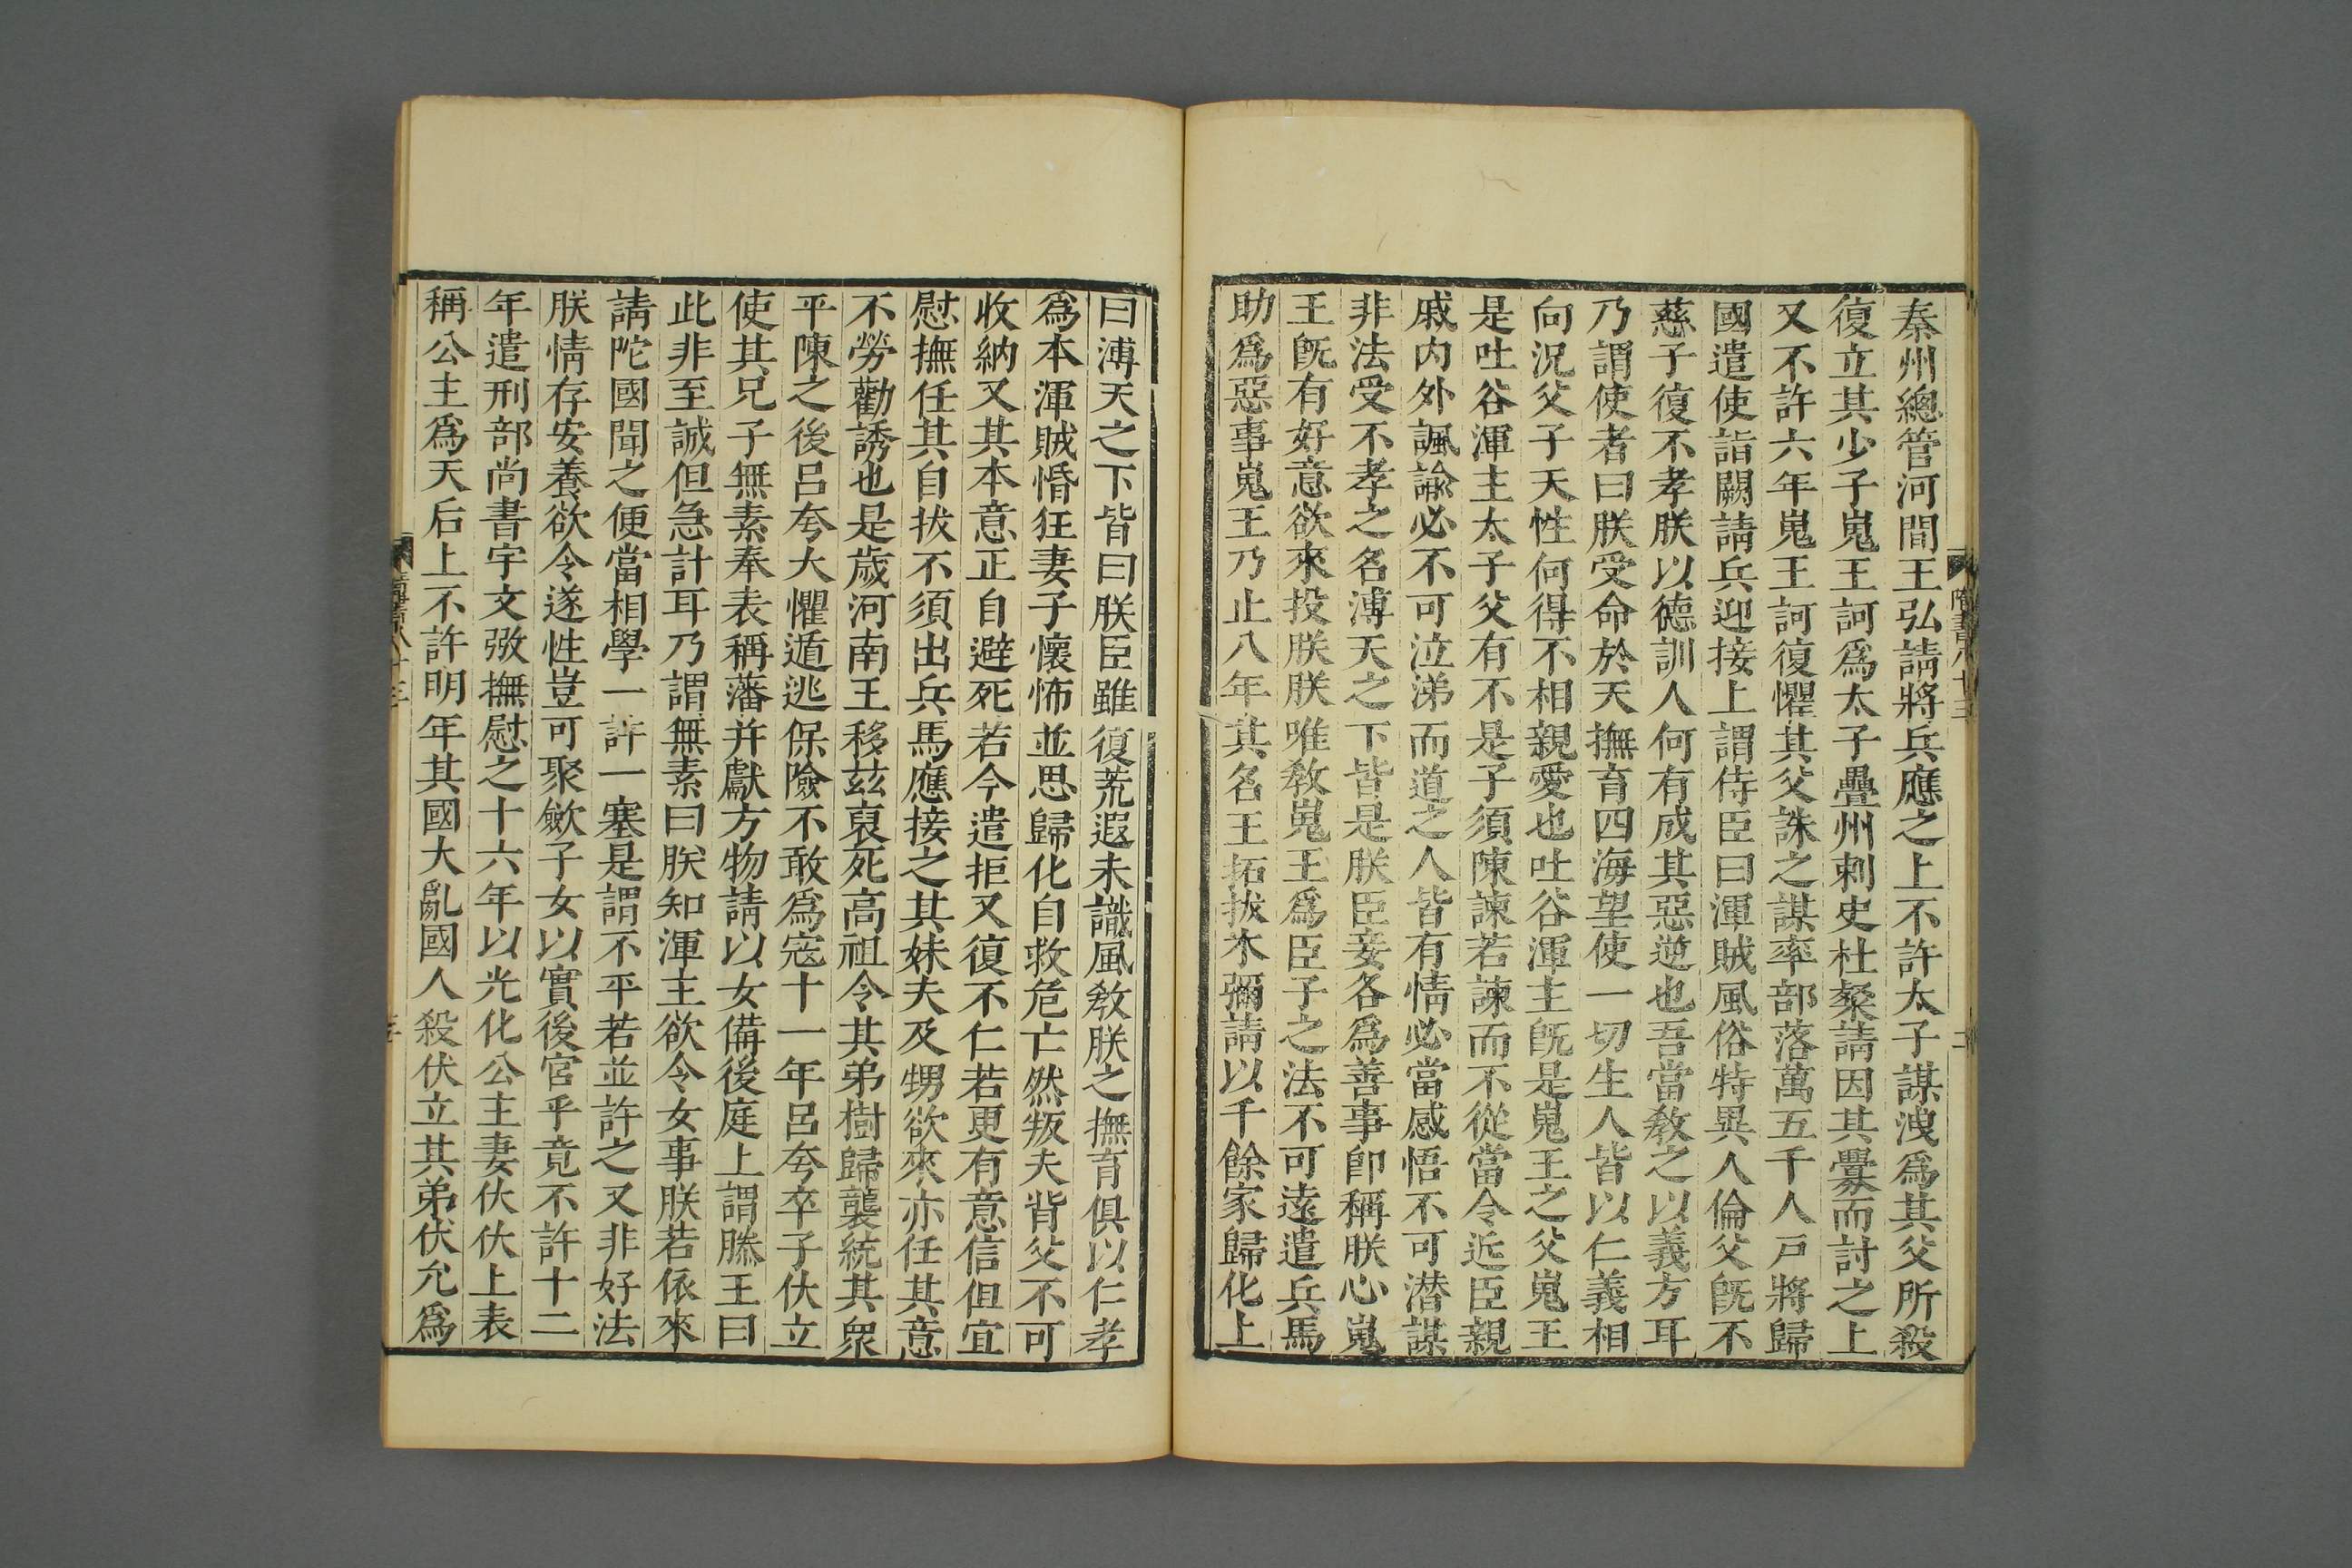 秦州總管河間王弘請將兵應之上不許太子謀洩爲其父所殺
復立其少子嵬王訶爲太子疊州刺史杜粲請因其舋而討之上
又不許六年嵬王訶復懼其父誅之謀率部落萬五千人戸將歸
國遣使詣闕請兵迎接上謂侍臣曰渾賊風俗特異人倫父既不
慈子復不孝朕以德訓人何有成其惡逆也吾當教之以義方耳
乃謂使者曰朕受命於天撫育四海望使一切生人皆以仁義相
向況父子天性何得不相親愛也吐谷渾主既是嵬王之父嵬王
是吐谷渾主太子父有不是子須陳諫若諫而不從當令近臣親
戚内外諷諭必不可泣涕而道之人皆有情必當感悟不可潜謀
非法受不孝之名溥天之下皆是朕臣妾各爲善事即稱朕心嵬
王既有好意欲來投朕朕唯教嵬王爲臣子之法不可遠遣兵馬
助爲惡事嵬王乃止八年其名王拓拔木彌請以千餘家歸化上
曰溥天之下皆曰朕臣雖復荒遐未識風教朕之撫育俱以仁孝
爲本渾賊惛狂妻子懷怖並思歸化自救危亡然叛夫背父不可
收納又其本意正自避死若今遣拒又復不仁若更有意信但宜
慰撫任其自拔不須出兵馬應接之其妹夫及甥欲來亦任其意
不勞勸誘也是歲河南王移茲裒死高祖令其弟樹歸襲統其衆
平陳之後呂夸大懼遁逃保險不敢爲寇十一年呂夸卒子伏立
使其兄子無素奉表稱藩并獻方物請以女備後庭上謂滕王曰
此非至誠但急計耳乃謂無素曰朕知渾主欲令女事朕若依來
請陀國聞之便當相學一許一塞是謂不平若並許之又非好法
朕情存安養欲令遂性豈可聚歛子女以實後宮乎竟不許十二
年遣刑部尚書宇文弢撫慰之十六年以光化公主妻伏伏上表
稱公主爲天后上不許明年其國大亂國人殺伏立其弟伏允爲